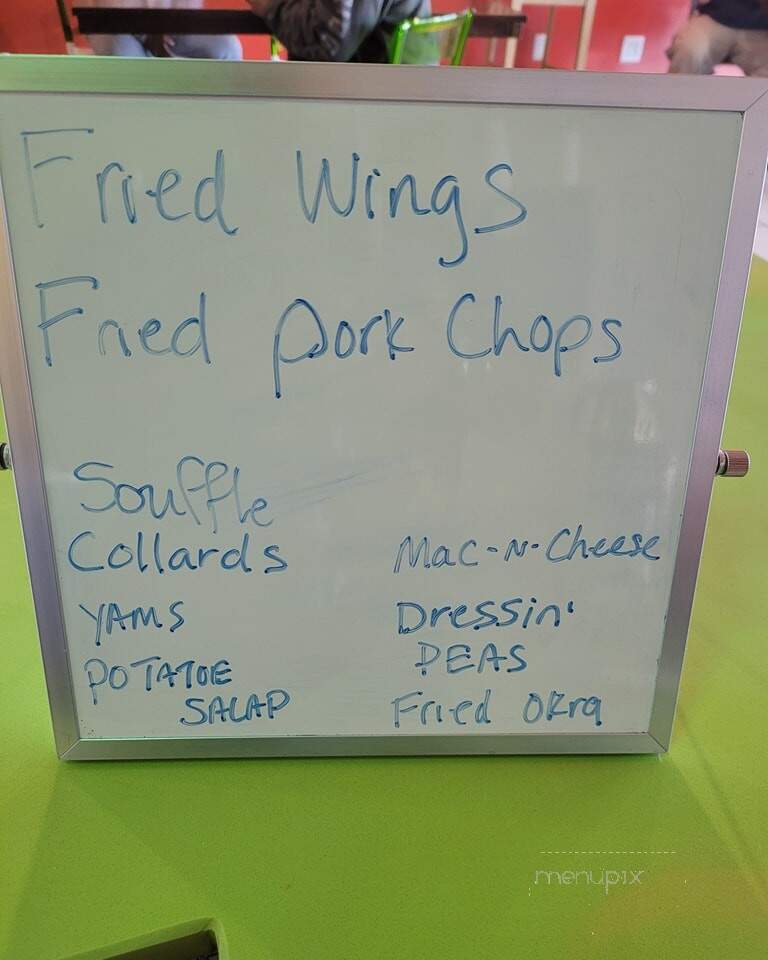 Fried Wings
Fried pork Chops
Souffle
Collards
YAMS
POTATOE
SALAD
Mac-N-Cheese
Dressin'
PEAS
Fried Okra
menupix